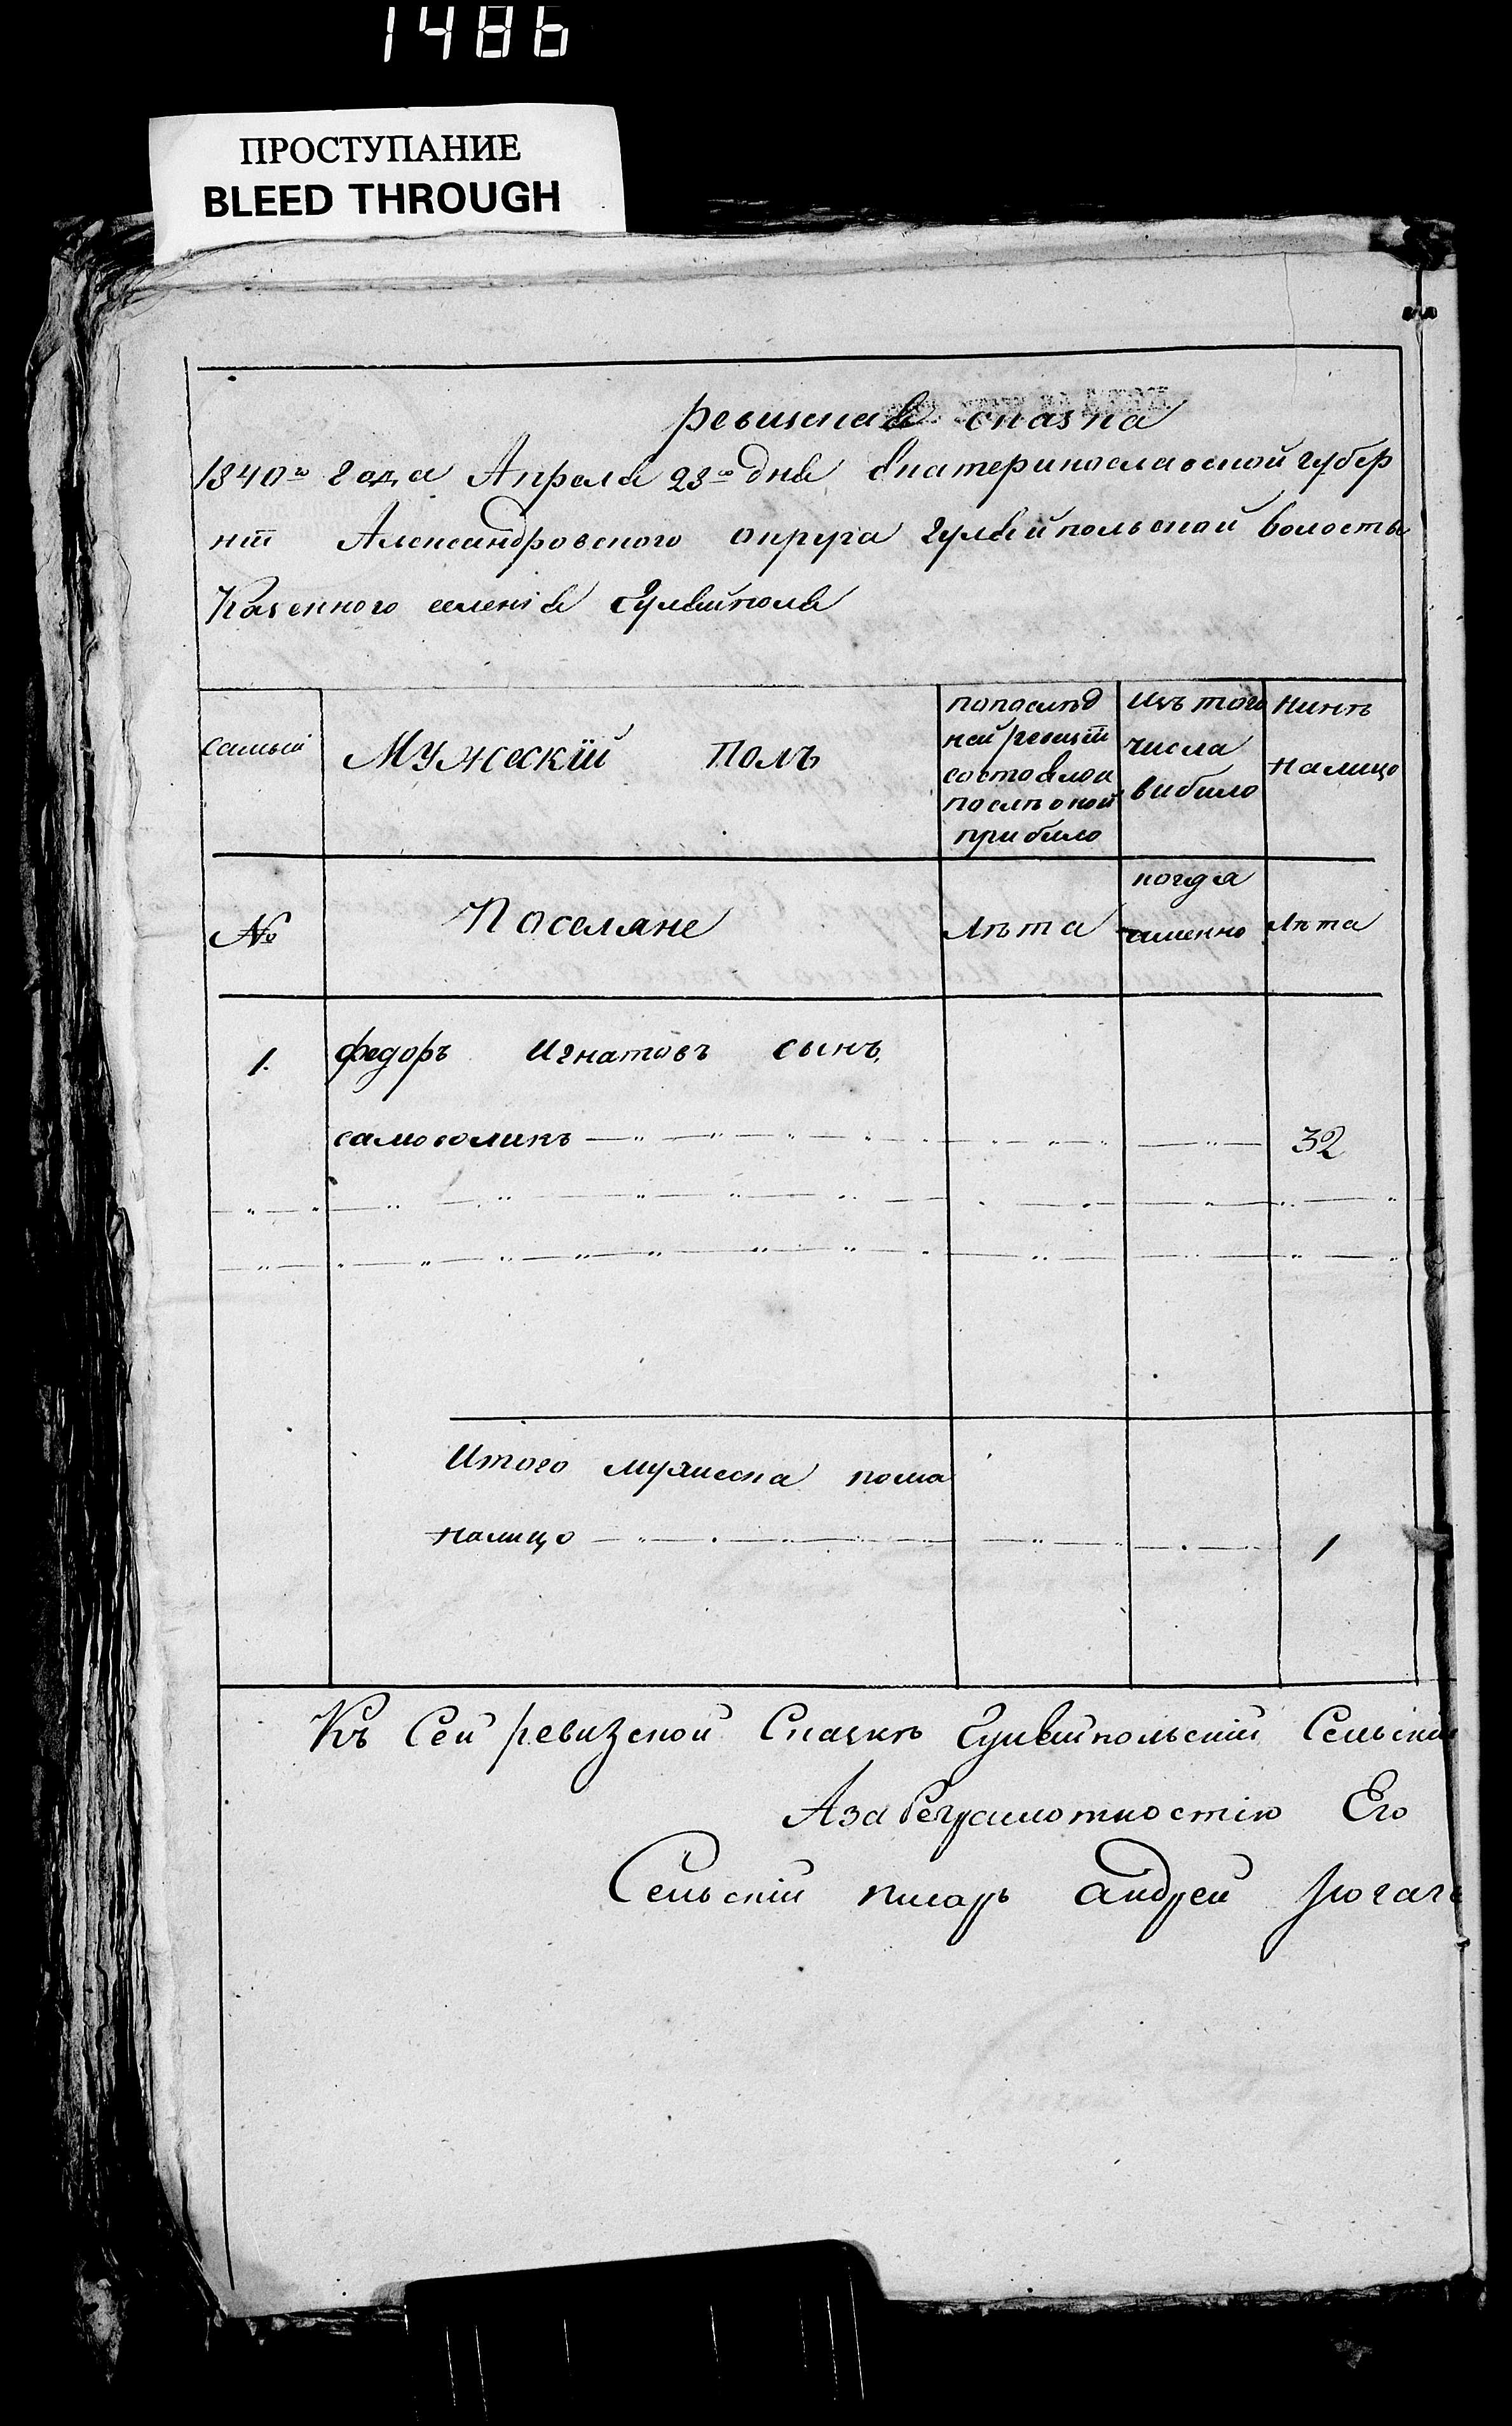 1486
ПРОСТУПАНИЕ
BLEED THROUGH
ревизская сказка
1840го года Апреля 23го дня Екатеринославской губер
нiи Александровского округа Гуляйпольской волости
Казенного селенiя Гуляйполя
Мужескiй Полъ
попослѣд
ней ревизiи
состояло и
послѣ оной
прибило
Изъ того
числа
вибило
Нинѣ
налицо
семьи
№
Поселяне
лѣта
когда
именно
лѣта
1.
Федоръ Игнатовъ сынъ
самоволикъ
32
Итого мужеска пола
налицо
1
Къ Сей ревизской Сказкѣ Гуляйпольскiй Сельскiй
А за безграмотностiю Его
Сельскiй писарь Андрей